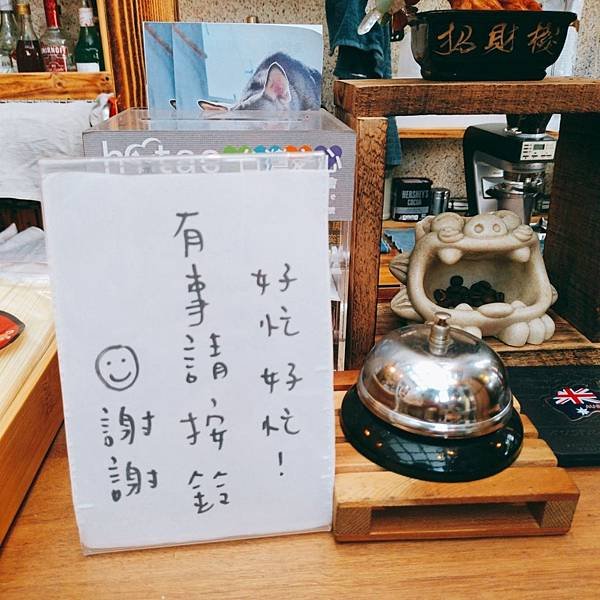 好忙好忙！
有事請按鈴
☺謝謝
招財樹
HERSHEY'S
COCOA